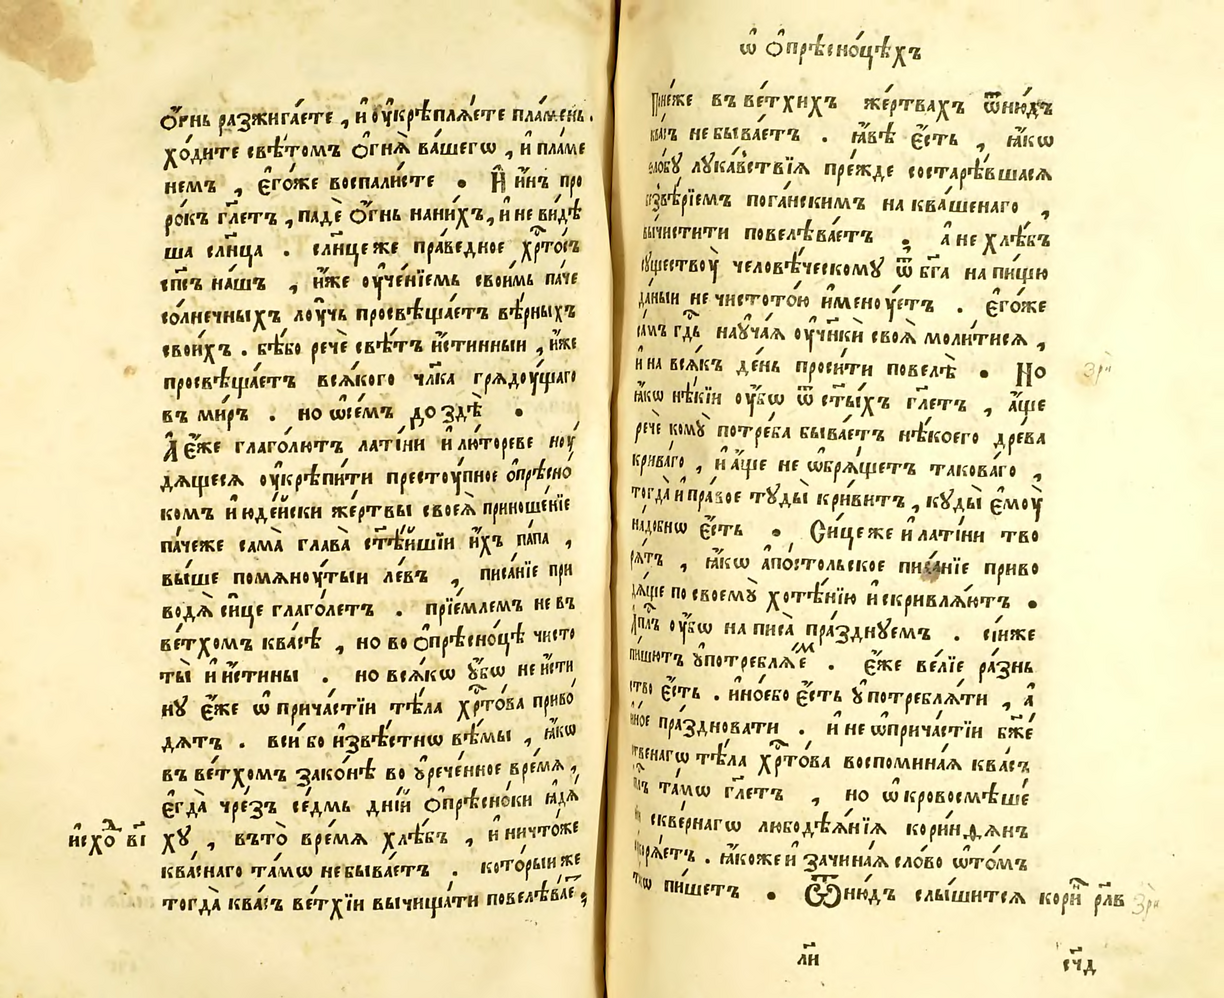 ѻ҆́гнь разжига́ете , и҆ оу҆крѣплѧ́ете пла́мень .
ходи́те свѣ́томъ ѻ҆гнѧ̀ ва́шегѡ , и҆ пла́ме
немъ , є҆го́же воспали́сте . И҆ и҆́нъ про
ро́къ гл҃етъ , падѐ ѻ҆́гнь нани́хъ , и҆ не ви́дѣ
ша сл҃нца . сл҃нце же пра́ведное хрⷭ҇то́съ
сп҃съ на́шъ , и҆́же оу҆че́нїемь свои́мь па́че
со́лнечныхъ лоу́чь просвѣща́етъ вѣ́рныхъ
свои́хъ . бѣ́бо речѐ свѣ́тъ и҆́стинныи , и҆́же
просвѣща́етъ всѧ́кого чл҃ка грѧдоу́щаго
въ ми́ръ . но ѡ҆се́мъ до здѐ .
А҆ є҆́же глаго́лютъ лати́ни и҆ лю́тореве ноу́
дѧщесѧ оу҆крѣпи́ти престоу́пное ѻ҆прѣ́сно
комъ и҆ ю҆де́йски же́ртвы своеѧ̀ приноше́нїе
па́чеже сама̀ глава̀ ст҃ѣ́йшїи и҆́хъ па́па ,
вы́ше помѧноу́тыи ле́въ , писа́нїе при
водѧ̀ си́це глаго́летъ . прїе́млемъ не въ
ве́тхомъ ква́сѣ , но во ѻ҆прѣсно́цѣ чисто
ты̀ и҆ и҆́стины . но всѧ́кѡ ᲂу҆́бѡ не и҆́сти
ну є҆́же ѡ҆ прича́стїи тѣ́ла хрⷭ҇то́ва приво́
дѧтъ . вси́ бо и҆звѣ́стнѡ вѣ́мы , ꙗ҆́кѡ
въ ве́тхомъ зако́нѣ во ᲂу҆рече́нное вре́мѧ ,
є҆гда̀ чре́зъ се́дмь дні́й ѻ҆прѣсно́ки ꙗ҆дѧ́
и҆схо́ⷣ в҃і
ху , въто̀ вре́мѧ хлѣ́бъ , и҆ ничто́же
ква́снаго та́мѡ не быва́етъ . кото́рыи же
тогда̀ ква́съ ве́тхїи вычища́ти повелѣва́е ;
ѡ҆ ѻ҆прѣсно́цѣхъ
Поне́же въ ве́тхихъ же́ртвахъ ѿню́дъ
ква́съ не быва́етъ . ꙗ҆́вѣ є҆́сть , ꙗ҆́кѡ
ѕло́бу лука́вствїѧ пре́жде состарѣ́вшаѧсѧ
безвѣ́рїемъ пога́нскимъ на ква́шенаго ,
вычи́стити повелѣва́етъ . а҆ не хлѣ́бъ
существоу̀ человѣ́ческому ѿ бг҃а на пи́щю
да́ныи не чистото́ю и҆меноу́етъ . є҆го́же
са́мъ гдⷭ҇ь науча́ѧ оу҆чн҃кѝ своѧ̀ моли́тисѧ ,
и҆ на всѧ́къ де́нь проси́ти повелѣ̀ . Но
зри
ꙗ҆́кѡ нѣ́кїи оу҆́бѡ ѿ ст҃ы́хъ гл҃етъ , а҆́ще
рече кому̀ потре́ба быва́етъ нѣ́коего дре́ва
крива́го , и҆ а҆́ще не ѡ҆брѧ́щетъ такова́го ,
тогда̀ и҆ пра́вое туды̀ криви́тъ , куды̀ є҆моу̀
на́добнѡ є҆́сть . Си́це же и҆ лати́ни тво
рѧ́тъ , ꙗ҆́кѡ а҆по́стольское писа́нїе приво
дѧ́ще по своему̀ хотѣ́нїю и҆скривлѧ́ютъ .
А҆пⷭ҇лъ оу҆́бѡ на писа̀ пра́зднуемъ . сі́иже
пи́шютъ ᲂу҆потреблѧ́еⷨ . є҆́же ве́лїе ра́знь
ство є҆́сть . и҆но́ебо є҆́сть ᲂу҆потреблѧ́ти , а҆
и҆но́е пра́здновати . и҆ не ѡ҆прича́стїи бж҃е́
ственагѡ тѣ́ла хрⷭ҇то́ва воспомина́ѧ ква́съ
па́ⷡ та́мѡ гл҃етъ , но ѡ҆ кровосмѣше́
нїи скве́рнагѡ любодѣѧ́нїѧ кори́нѳѧнъ
оу҆корѧ́етъ . ꙗ҆́коже и҆ зачина́ѧ сло́во ѡ҆то́мъ
та́кѡ пи́шетъ . Ѿню́дъ слы́шитсѧ кориⷩ҇ рл҃в
зри
л҃и
сч҃д